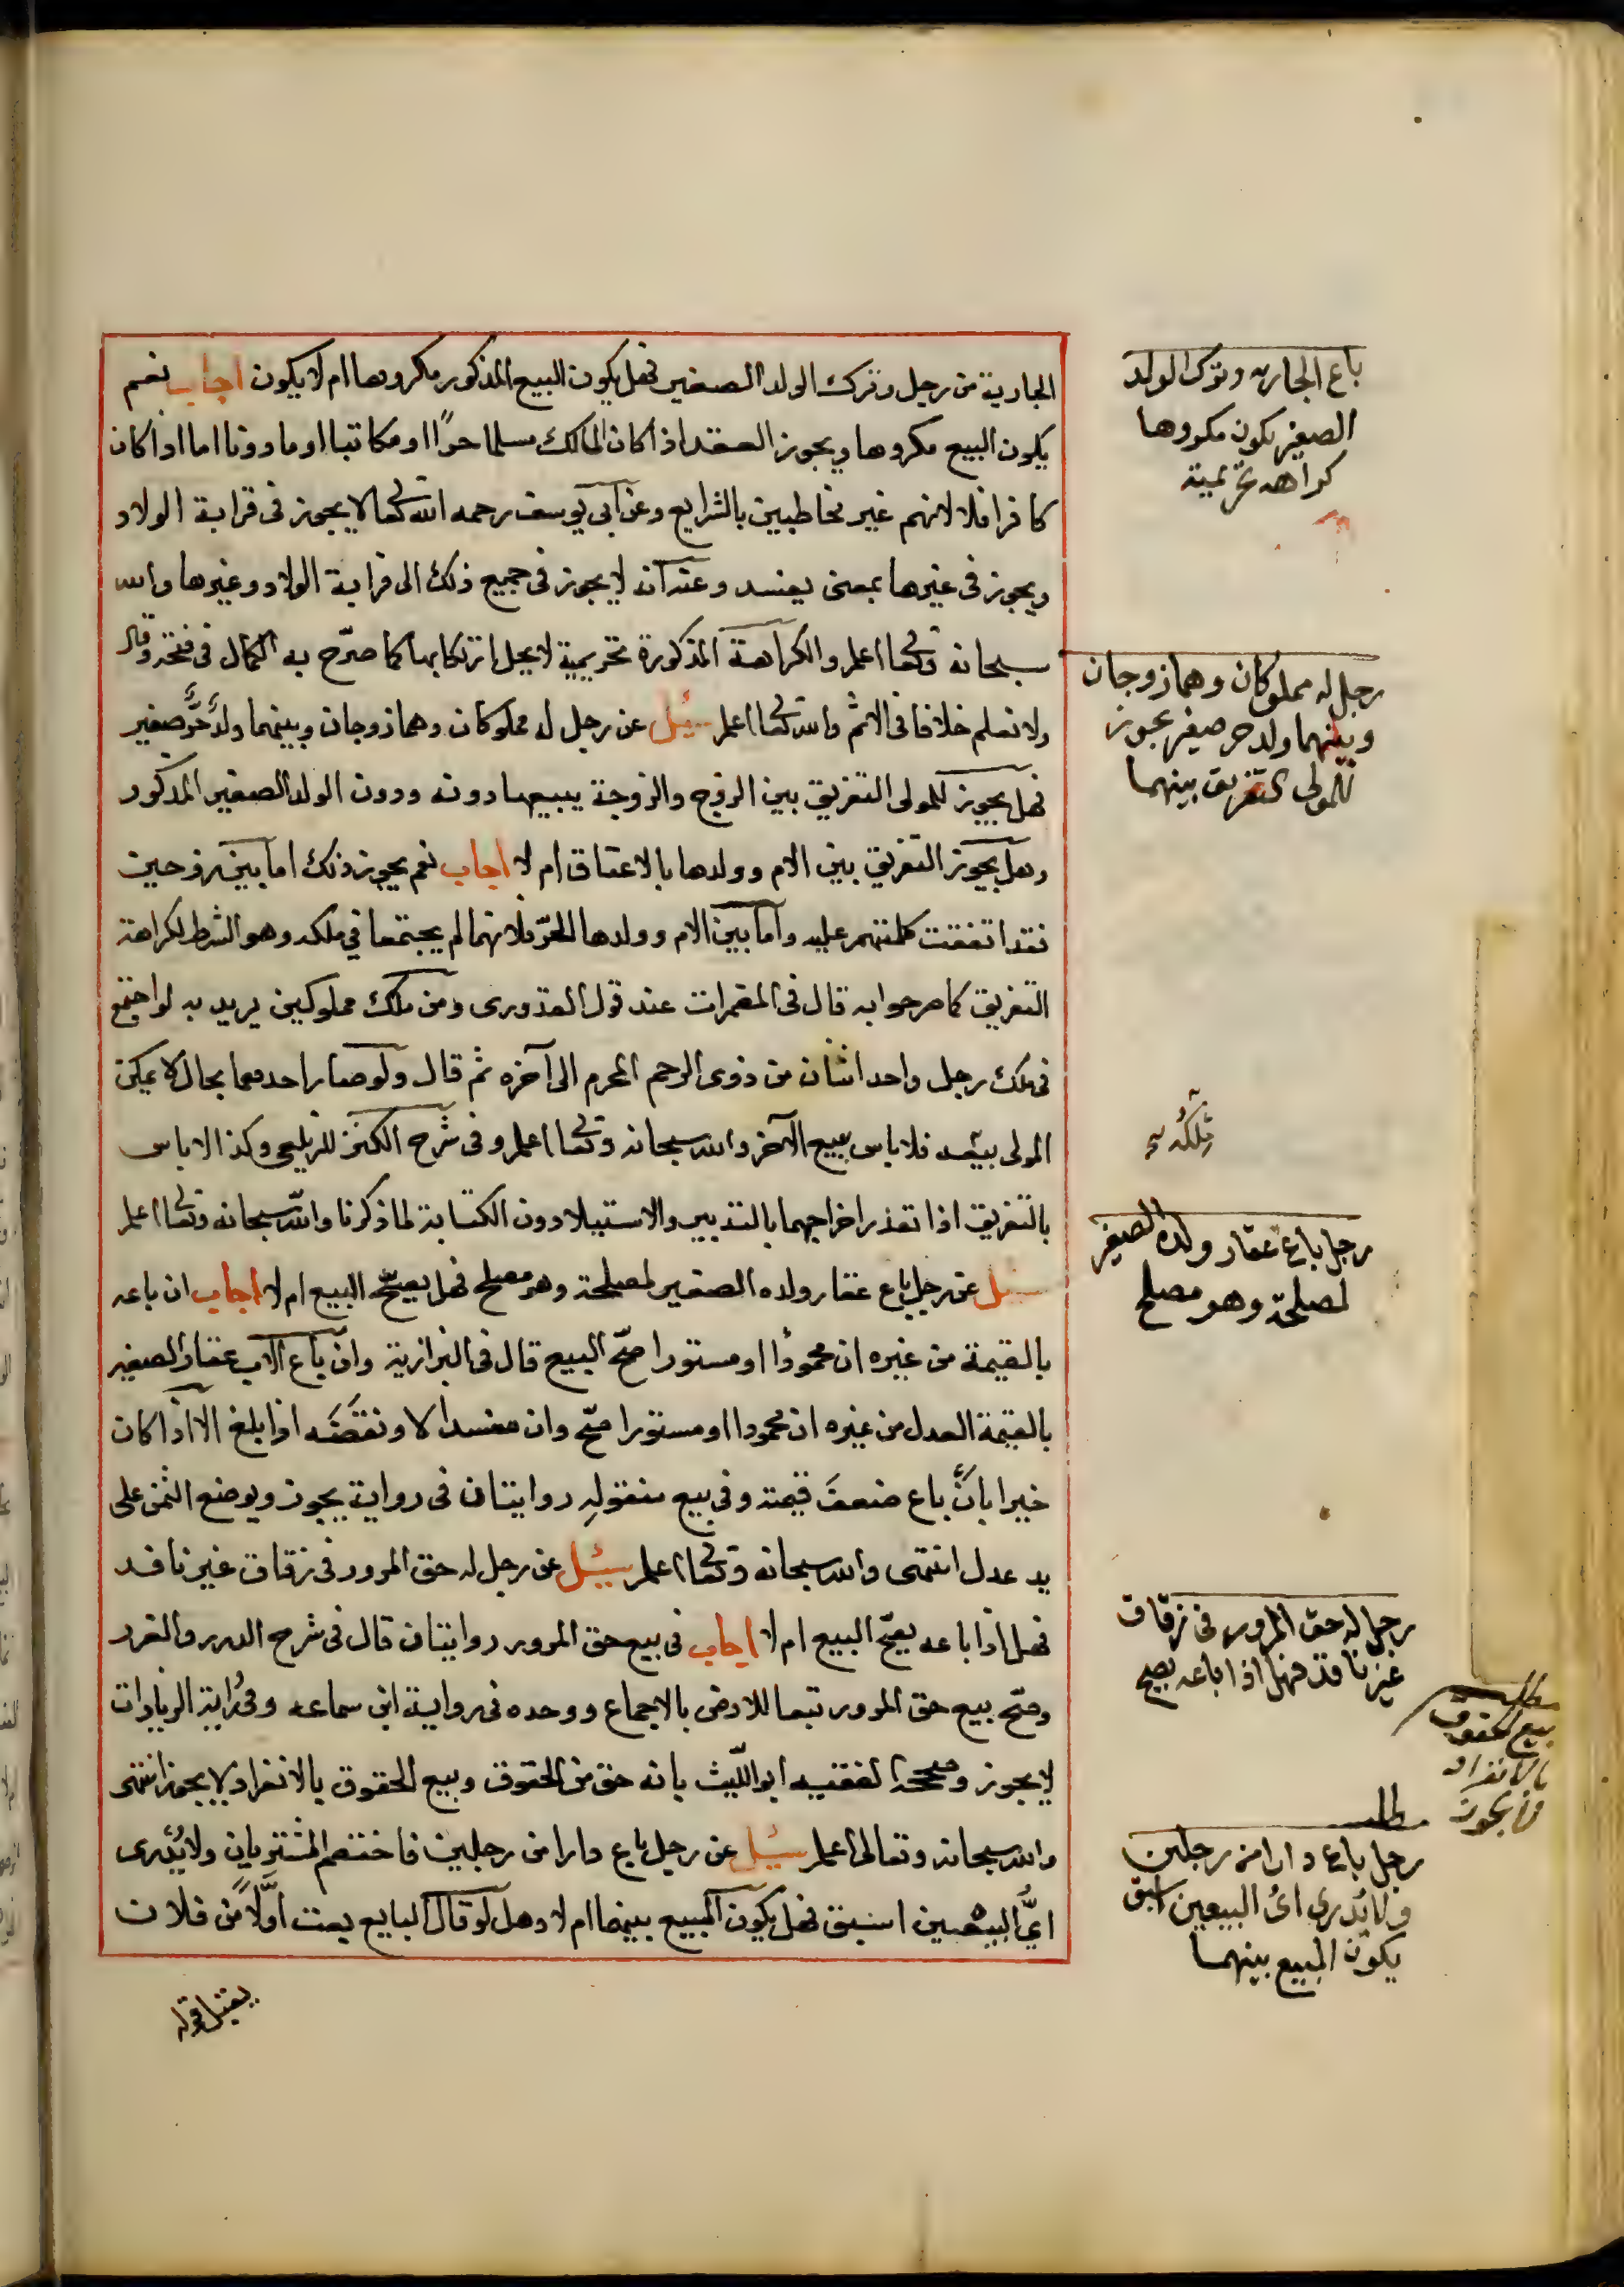 الجارية من رجل وترك الولد الصغير فهل يكون البيع المذكور مكروها ام لا يكون اجاب نعم
يكون البيع مكروها ويجوز العقد اذا كان المالك مسلما حرًا او مكاتبا او ماذونا اما اذا كان
كافرا فلا لانهم غير مخاطبين بالشرايع وعن ابى يوسف رحمه الله تعالى لا يجوز فى قرابة الولاد
ويجوز فى غيرها بمعنى يفسد وعنه ان لا يجوز فى جميع ذلك الى قرابة الولاد وغيرها والله
سبحانه وتعالى اعلم والكراهة المذكورة تحريمية لا يحل ارتكابها كما صرّح به الكمال فى فتحه وقال
ولا نعلم خلافا فى الاثم والله تعالى اعلم سئل عن رجل له مملوكان وهما زوجان وبينهما ولدٌ حرٌّ صغير
فهل يجوز للمولى التفريق بين الزوج والزوجة ببيعها دونه ودون الولد الصغير المذكور
وهل يجوز التفريق بين الام وولدها بالاعتاق ام لا اجاب نعم يجوز ذلك اما بين زوجين
فقد اتفقت كلمتهم عليه واما بين الام وولدها الحرّ فلانهما لم يجتمعا في ملكه وهو الشرط لكراهة
التفريق كما صرحوا به قال فى المضمرات عند قول القدورى ومن ملك مملوكين يريد به لو اجتمع
فى ملك رجل واحد اثنان من ذوى الرحم المحرم الى آخره ثم قال ولو صار احدهما بحال لا يمكن
المولى بيعه فلا باس ببيع الآخر والله سبحانه وتعالى اعلم وفى شرح الكنز للزيلعى وكذا لا باس
بالتفريق اذا تعذر اخراجهما بالتدبير والاستيلاد دون الكتابة لما ذكرنا والله سبحانه وتعالى اعلم
سئل عن رجل باع عقار ولده الصغير لمصلحة وهو مصلح فهل يصحّ البيع ام لا اجاب ان باعه
بالقيمة من غيره ان محمودًا او مستورا صحّ البيع قال فى البزازية وان باع الاب عقار الصغير
بالقيمة العدل من غيره ان محمودا او مستورا صحّ وان مفسدا لا ونقضَه اذا بلغ الا اذا كان
خيرا بأن باع ضعف قيمته وفى بيع منقوله روايتان فى رواية يجوز ويوضع الثمن على
يد عدل انتهى والله سبحانه وتعالى اعلم سئل عن رجل له حق المرور فى زقاق غير نافد
فهل اذا باعه يصحّ البيع ام لا اجاب فى بيع حق المرور روايتان قال فى شرح الدرر والغرر
وصحّ بيع حق المرور تبعا للارض بالاجماع ووحده فى رواية ابن سماعه وفى رواية الزيادات
لا يجوز وصححه الفقيه ابو اللّيث بانه حق من الحقوق وبيع الحقوق بالانفراد لا يجوز انتهى
والله سبحانه وتعالى اعلم سئل عن رجل باع دارا من رجلين فاختصم المشتريان ولا يُدرى
ايُّ البيعين اسبق فهل يكون المبيع بينهما ام لا وهل لو قال البايع بعت اوّلًا من فلان
يقبل قوله
باع الجاريه وترك الولد
الصغير يكون مكروها
كراهه تحريمية
رجل له مملوكان وهما زوجان
وبينهما ولد حر صغير يجوز
للمولى التفريق بينهما
رجل باع عقار ولده الصغير
لمصلحة وهو مصلح
رجل له حق المرور فى زقاق
غير نافذ فهل اذا باعه يصح
مطلب
بيع الحقوق
بالانفراد
مطلب
رجل باع دارا من رجلين
ولا يُدرى اىُ البيعين اسبق
يكون المبيع بينهما